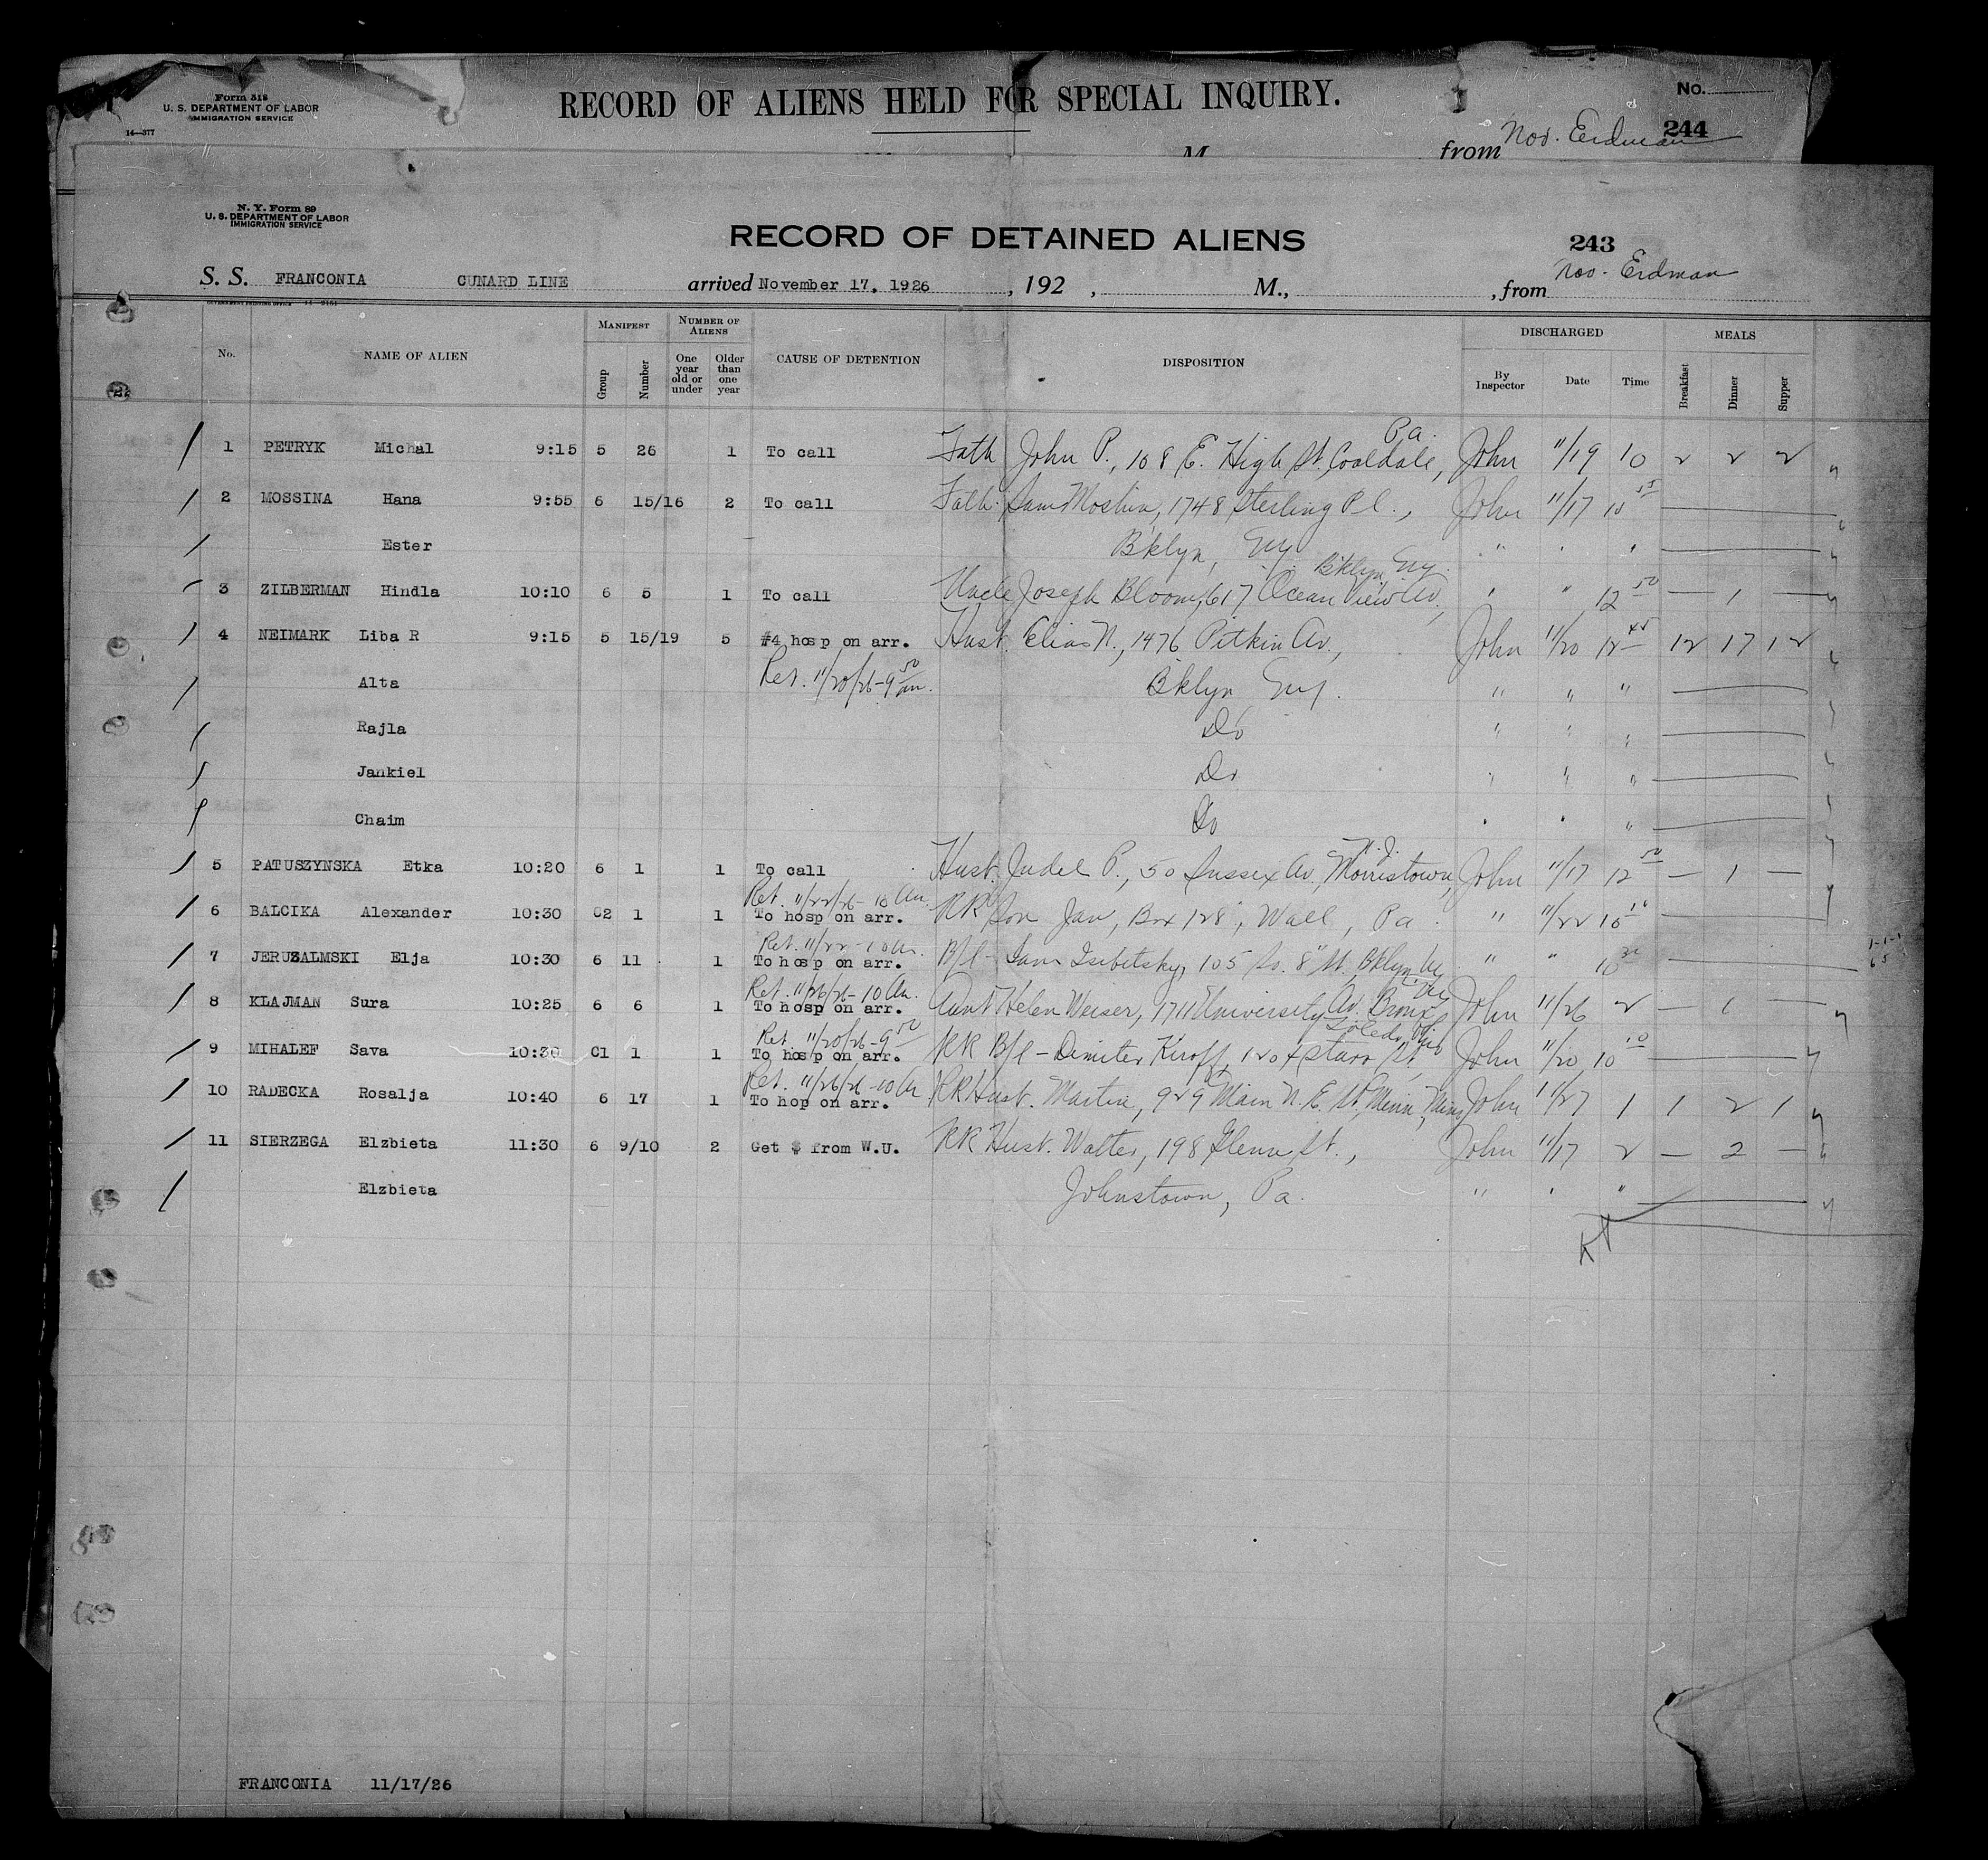 Form 518
U. S. DEPARTMENT OF LABOR
IMMIGRATION SERVICE
14—377
RECORD OF ALIENS HELD FOR SPECIAL INQUIRY.
No.
244
M
from Nov. Erdman
N. Y. Form 89
U. S. DEPARTMENT OF LABOR
IMMIGRATION SERVICE
RECORD OF DETAINED ALIENS
243
S. S. FRANCONIA CUNARD LINE arrived November 17, 1926, 192 , M., , from Nov. Erdman
GOVERNMENT PRINTING OFFICE
No. NAME OF ALIEN MANIFEST Group Number NUMBER OF ALIENS One year old or under Older than one year CAUSE OF DETENTION DISPOSITION DISCHARGED By Inspector Date Time MEALS Breakfast Dinner Supper
Pa.
1 PETRYK Michal 9:15 5 26 1 To call Fath John P., 108 E. High St., Coaldale, John 11/19 10 2 2 2
2 MOSSINA Hana 9:55 6 15/16 2 To call Fath. Sam Moshin, 1748 Sterling Pl., John 11/17 10
Ester Bklyn, NY " " "
Bklyn NY.
3 ZILBERMAN Hindla 10:10 6 5 1 To call Uncle Joseph Bloom, 617 Ocean View Av, " " 12 50 — 1 —
4 NEIMARK Liba R 9:15 5 15/19 5 #4 hosp on arr. Hust. Elias N., 1476 Pitkin Av., John 11/20 12 45 12 17 12
Alta Ret. 11/20/26 - 9 50 am. Bklyn NY. " " "
Rajla Do " " "
Jankiel Do " " "
Chaim Do " " "
N.J.
5 PATUSZYNSKA Etka 10:20 6 1 1 To call Hust. Judel P., 50 Sussex Av., Morristown, John 11/17 12 50 — 1 —
Ret. 11/22/26 - 10 Am.
6 BALCIKA Alexander 10:30 C2 1 1 To hosp on arr. RR Son Jan, Box 128, Wall, Pa. " 11/22 10 10
Ret. 11/22 - 10 Am.
7 JERUZALMSKI Elja 10:30 6 11 1 To hosp on arr. B/l - Sam Isbitsky, 105 So. 8" St. Bklyn NY " " 10 30
Ret. 11/26/26 - 10 Am. NY
8 KLAJMAN Sura 10:25 6 6 1 To hosp on arr. Aunt Helen Weiser, 1711 University Av. Bronx John 11/26 2 — 1 —
Ret. 11/20/26 - 9 50 Toledo, Ohio
9 MIHALEF Sava 10:30 C1 1 1 To hosp on arr. RR B/l - Dimiter Kiroff, 1204 Starr St, John 11/20 10 10
Ret. 11/26/26 - 10 Am
10 RADECKA Rosalja 10:40 6 17 1 To hop on arr. RR Hust. Martin, 929 Main N.E. St, Minn, Minn John 11/27 1 1 2 1
11 SIERZEGA Elzbieta 11:30 6 9/10 2 Get $ from W.U. RR Hust. Walter, 198 Glenn St., John 11/17 2 — 2 —
Elzbieta Johnstown, Pa. " " "
FRANCONIA 11/17/26